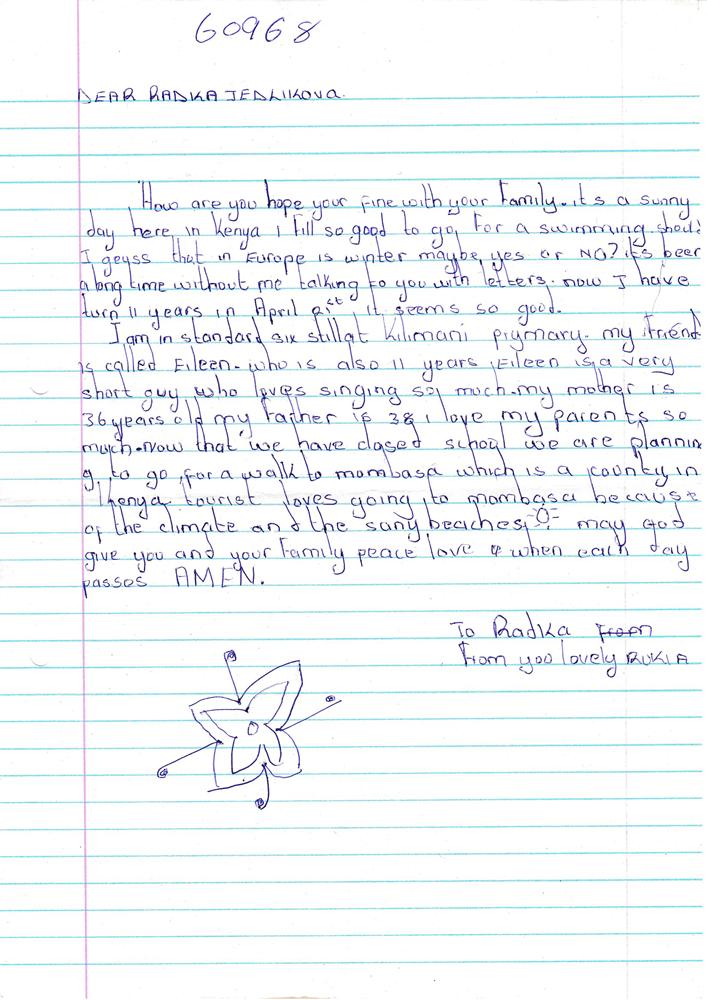 60968
DEAR RADKA JEDLIKOVA.
How are you hope your fine with your family. its a sunny
day here in Kenya I fill so good to go for a swimming. should
I geyss that in Europe is winter maybe, yes or NO? its beer
a long time without me talking to you with letters. now I have
turn 11 years in April 21st it seems so good.
I am in standard six still at Kilimani prymary. my friend
is called Eileen. who is also 11 years, Eileen is a very
short guy who loves singing so much. my mother is
36 years old my father is 38 i love my parents so
much. Now that we have closed school we are plannin
g, to go for a walk to mombasa which is a county in
Kenya tourist loves going to mombasa because
of the climate and the sany beaches. may god
give you and your family peace love & when each day
passes AMEN.
To Radka From
From yoo lovely RUKIA